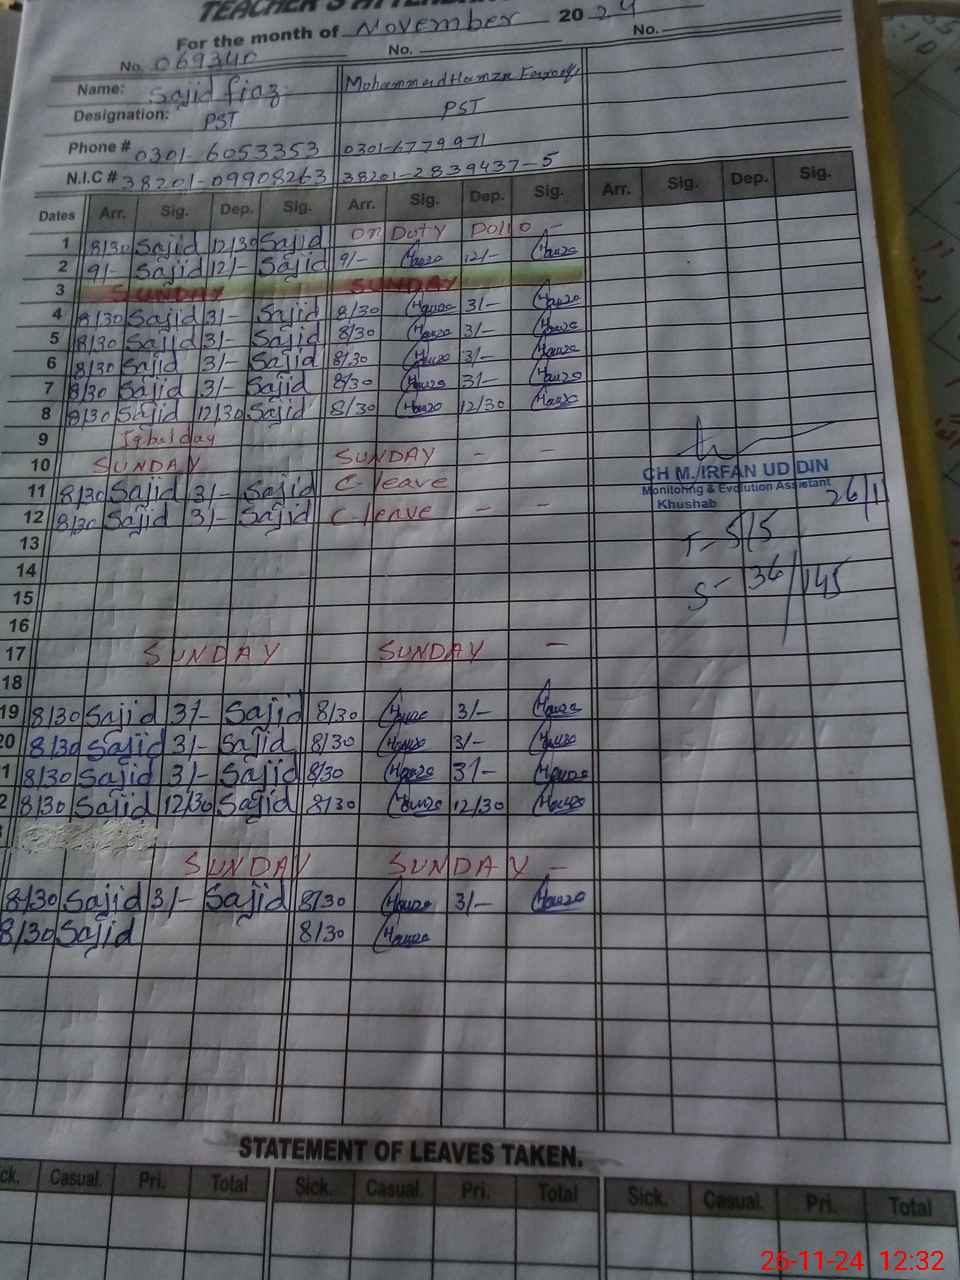 TEACHER'S ATTENDAN
For the month of November 2024
No. 069340 No. No.
Name: Sajid fiaz Mohammad Hamza Farooq
Designation: PST PST
Phone # 0301-6053353 0301-6779971
N.I.C # 38201-09908263 38201-2839437-5
Dates Arr. Sig. Dep. Sig. Arr. Sig. Dep. Sig. Arr. Sig. Dep. Sig.
1 8/30 Sajid 12/30 Sajid on Duty Polio -
2 9/- Sajid 12/- Sajid 9/- Hamza 12/- Hamza
3 SUNDAY SUNDAY
4 8/30 Sajid 3/- Sajid 8/30 Hamza 3/- Hamza
5 8/30 Sajid 3/- Sajid 8/30 Hamza 3/- Hamza
6 8/30 Sajid 3/- Sajid 8/30 Hamza 3/- Hamza
7 8/30 Sajid 3/- Sajid 8/30 Hamza 3/- Hamza
8 8/30 Sajid 12/30 Sajid 8/30 Hamza 12/30 Hamza
9 Iqbal day
10 SUNDAY SUNDAY - -
CH M. IRFAN UD DIN
Monitoring & Evolution Assistant
Khushab 26/11
11 8/30 Sajid 3/- Sajid C-leave
12 8/30 Sajid 3/- Sajid C-leave - -
13 T- 5/5
14
15 S- 36/145
16
17 SUNDAY SUNDAY -
18
19 8/30 Sajid 3/- Sajid 8/30 Hamza 3/- Hamza
20 8/30 Sajid 3/- Sajid 8/30 Hamza 3/- Hamza
1 8/30 Sajid 3/- Sajid 8/30 Hamza 3/- Hamza
2 8/30 Sajid 12/30 Sajid 8/30 Hamza 12/30 Hamza
SUNDAY SUNDAY -
8/30 Sajid 3/- Sajid 8/30 Hamza 3/- Hamza
8/30 Sajid 8/30 Hamza
STATEMENT OF LEAVES TAKEN.
ck. Casual. Pri. Total Sick. Casual. Pri. Total Sick. Casual. Pri. Total
26-11-24 12:32